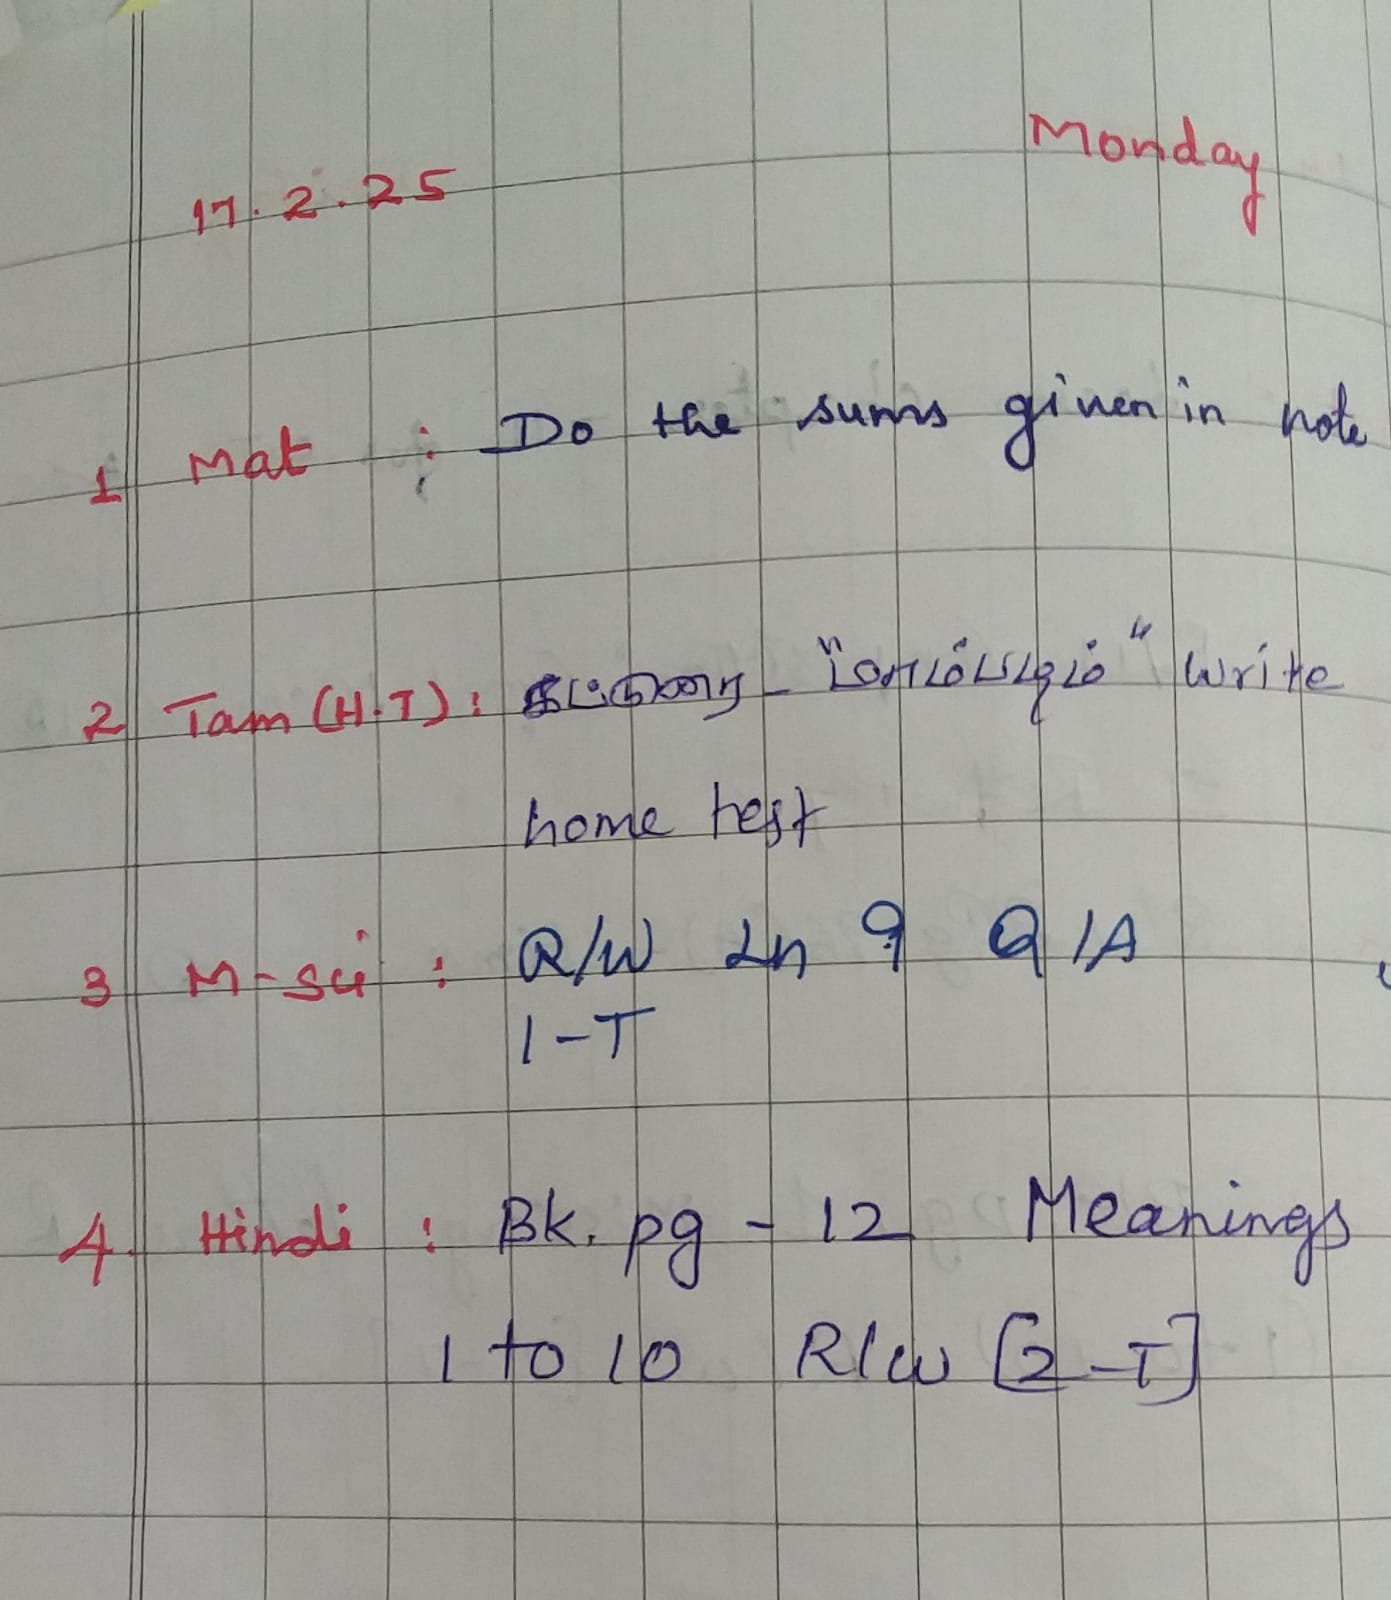 17.2.25 Monday
1 Mat : Do the sums given in note
2 Tam (H.T) : கட்டுரை - "மொம்மழும்" Write
home test
3 M-sci : R/W Ln 9 Q/A
1-T
4. Hindi : Bk. pg - 12 Meanings
1 to 10 R/W [2-T]